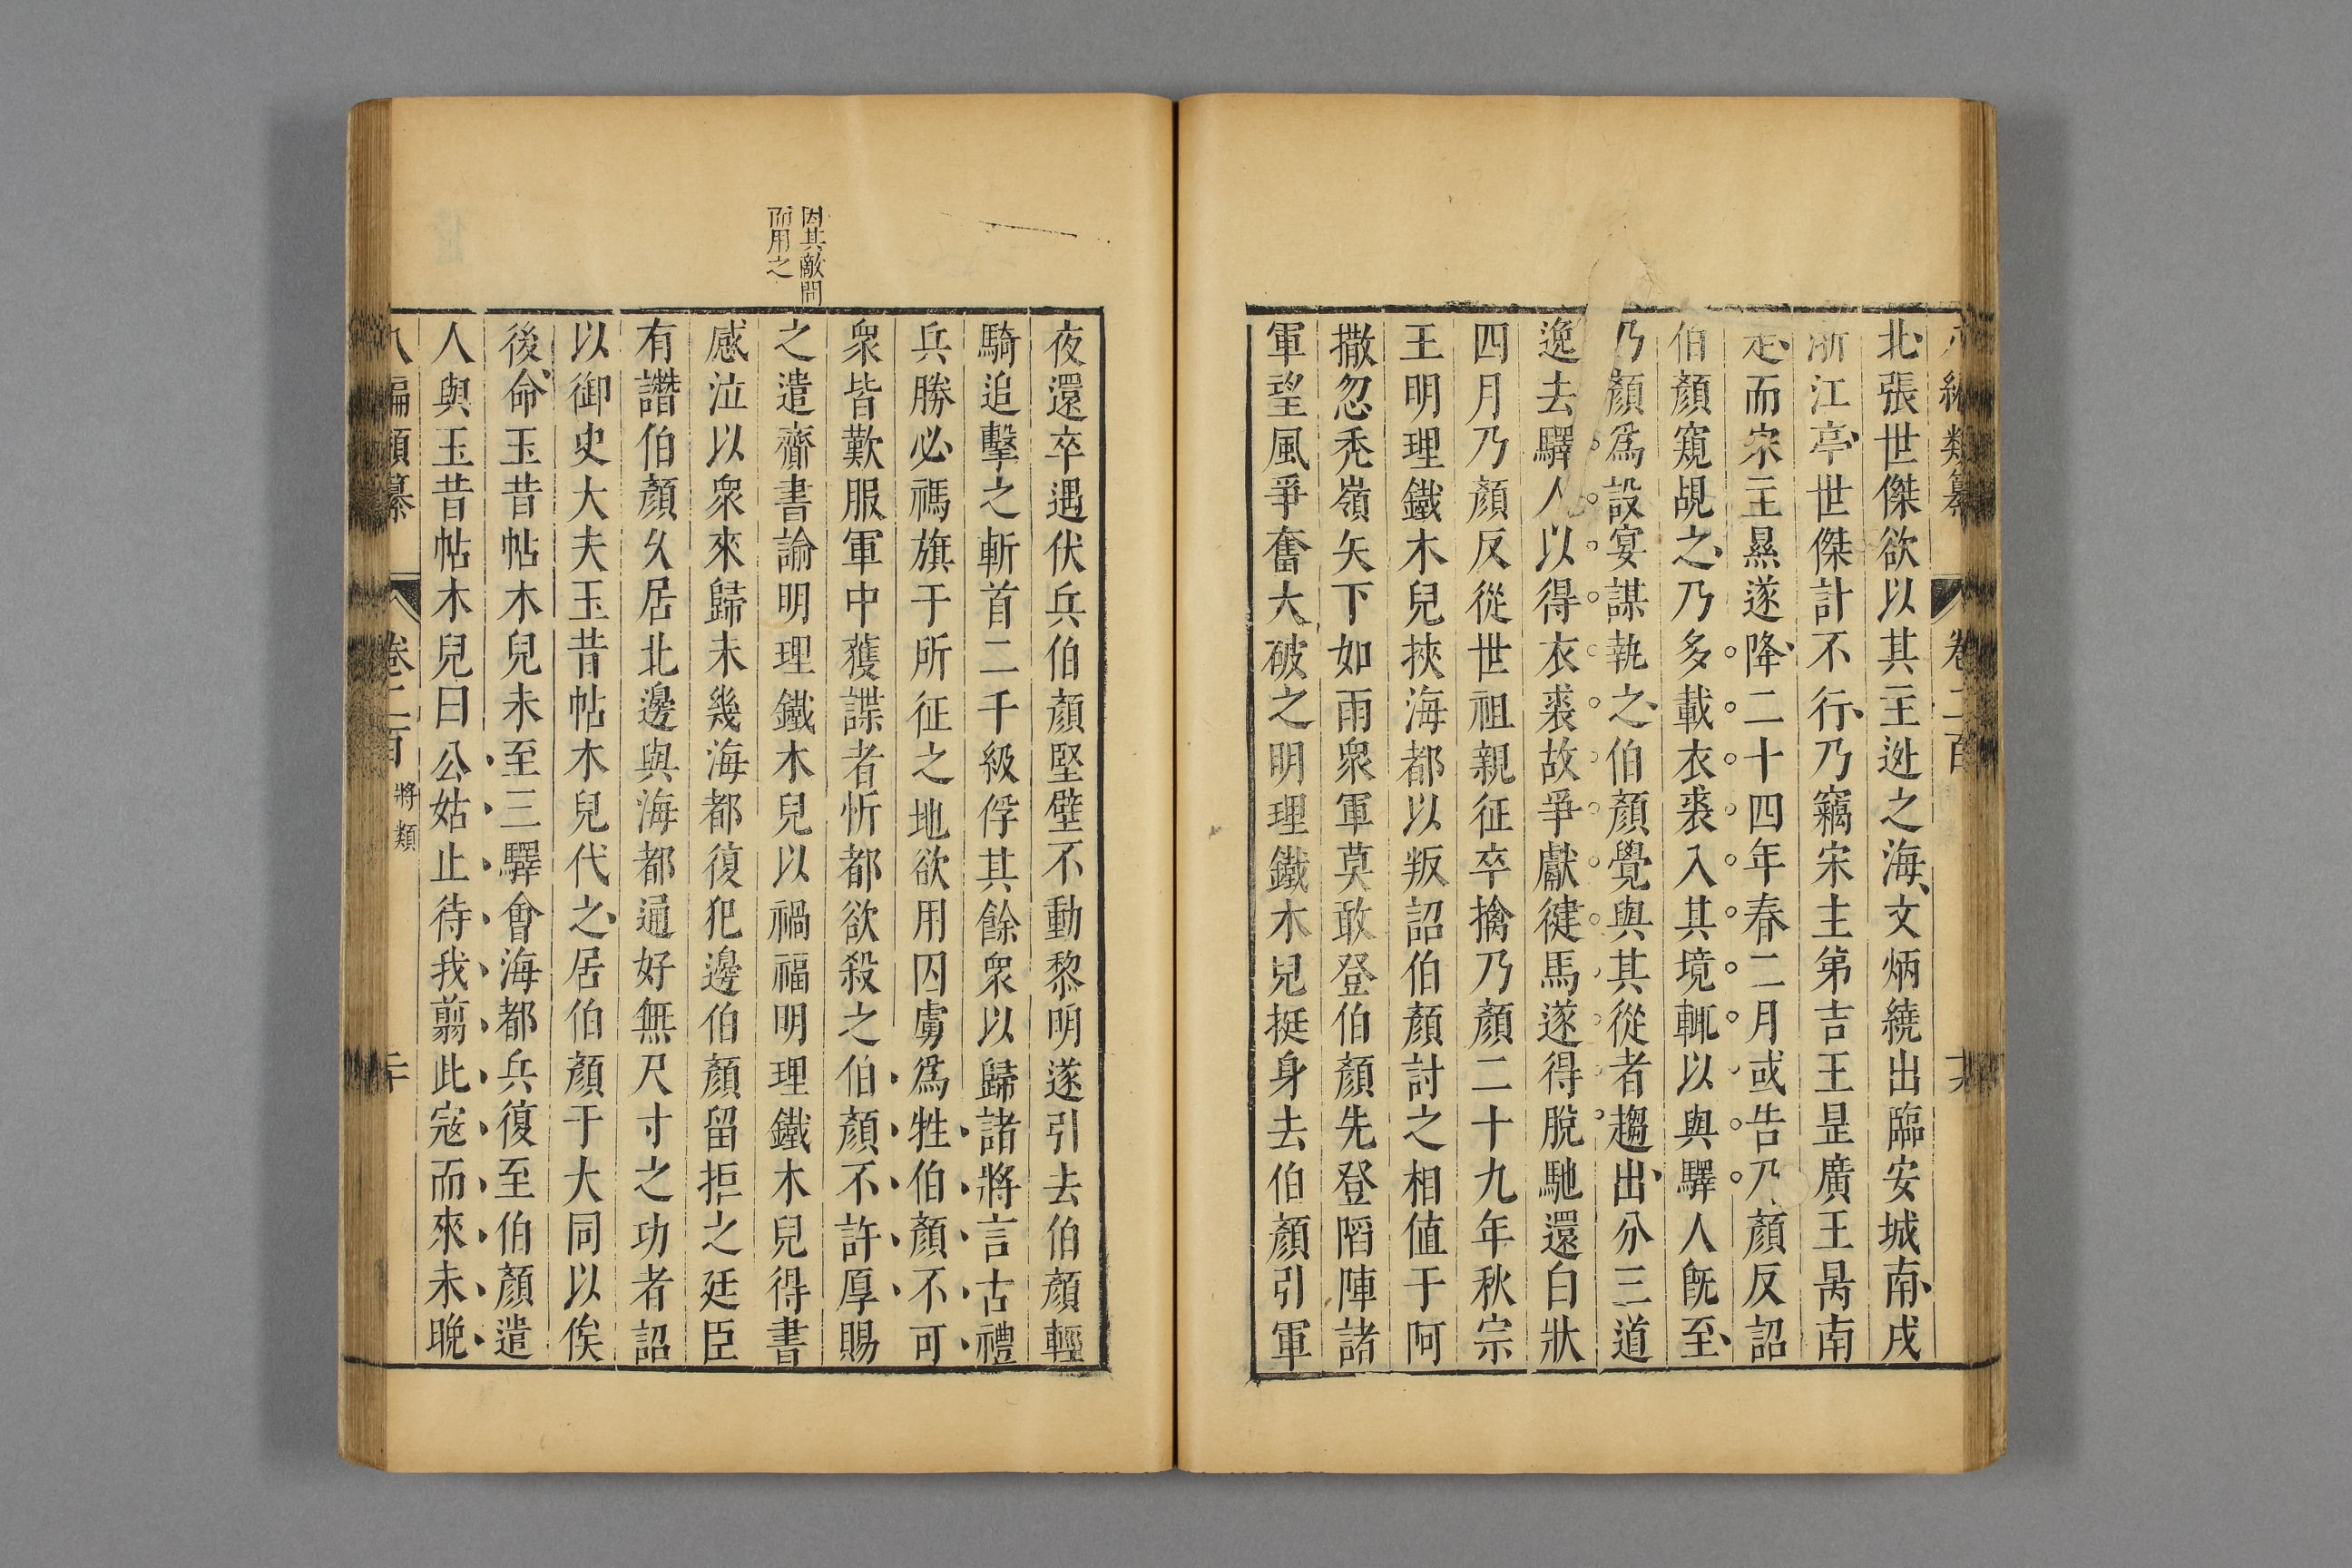 北張世傑欲以其主逃之海文炳繞出臨安城南戍
浙江亭世傑計不行乃竊宋主弟吉王昰廣王昺南
走而宋主㬎遂降二十四年春二月或告乃顏反詔
伯顏窺覘之乃多載衣裘入其境輒以與驛人旣至
乃顏爲設宴謀執之伯顏覺與其從者趨出分三道
逸去驛人以得衣裘故爭獻徤馬遂得脫馳還白狀
四月乃顏反從世祖親征卒擒乃顏二十九年秋宗
王明理鐵木兒挾海都以叛詔伯顏討之相値于阿
撒忽禿嶺矢下如雨衆軍莫敢登伯顏先登陷陣諸
軍望風爭奮大破之明理鐵木兒挺身去伯顏引軍
八編類纂 卷二百
因其敵間
而用之
夜還卒遇伏兵伯顏堅壁不動黎明遂引去伯顏輕
騎追擊之斬首二千級俘其餘衆以歸諸將言古禮
兵勝必禡旗于所征之地欲用囚虜爲牲伯顏不可
衆皆歎服軍中獲諜者忻都欲殺之伯顏不許厚賜
之遣齎書諭明理鐵木兒以禍福明理鐵木兒得書
感泣以衆來歸未幾海都復犯邊伯顏留拒之廷臣
有譖伯顏久居北邊與海都通好無尺寸之功者詔
以御史大夫玉昔帖木兒代之居伯顏于大同以俟
後命玉昔帖木兒未至三驛會海都兵復至伯顏遣
人與玉昔帖木兒曰公姑止待我翦此宼而來未晚
八編類纂 卷二百 將類